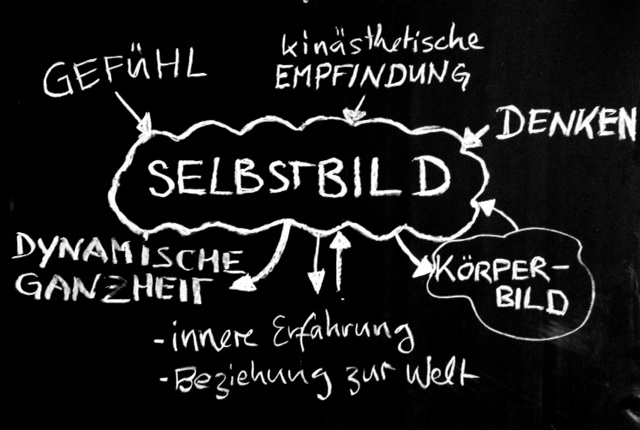 GEFÜHL
kinästhetische
EMPFINDUNG
DENKEN
SELBSTBILD
DYNAMISCHE
GANZHEIT
KÖRPER-
BILD
- innere Erfahrung
- Beziehung zur Welt